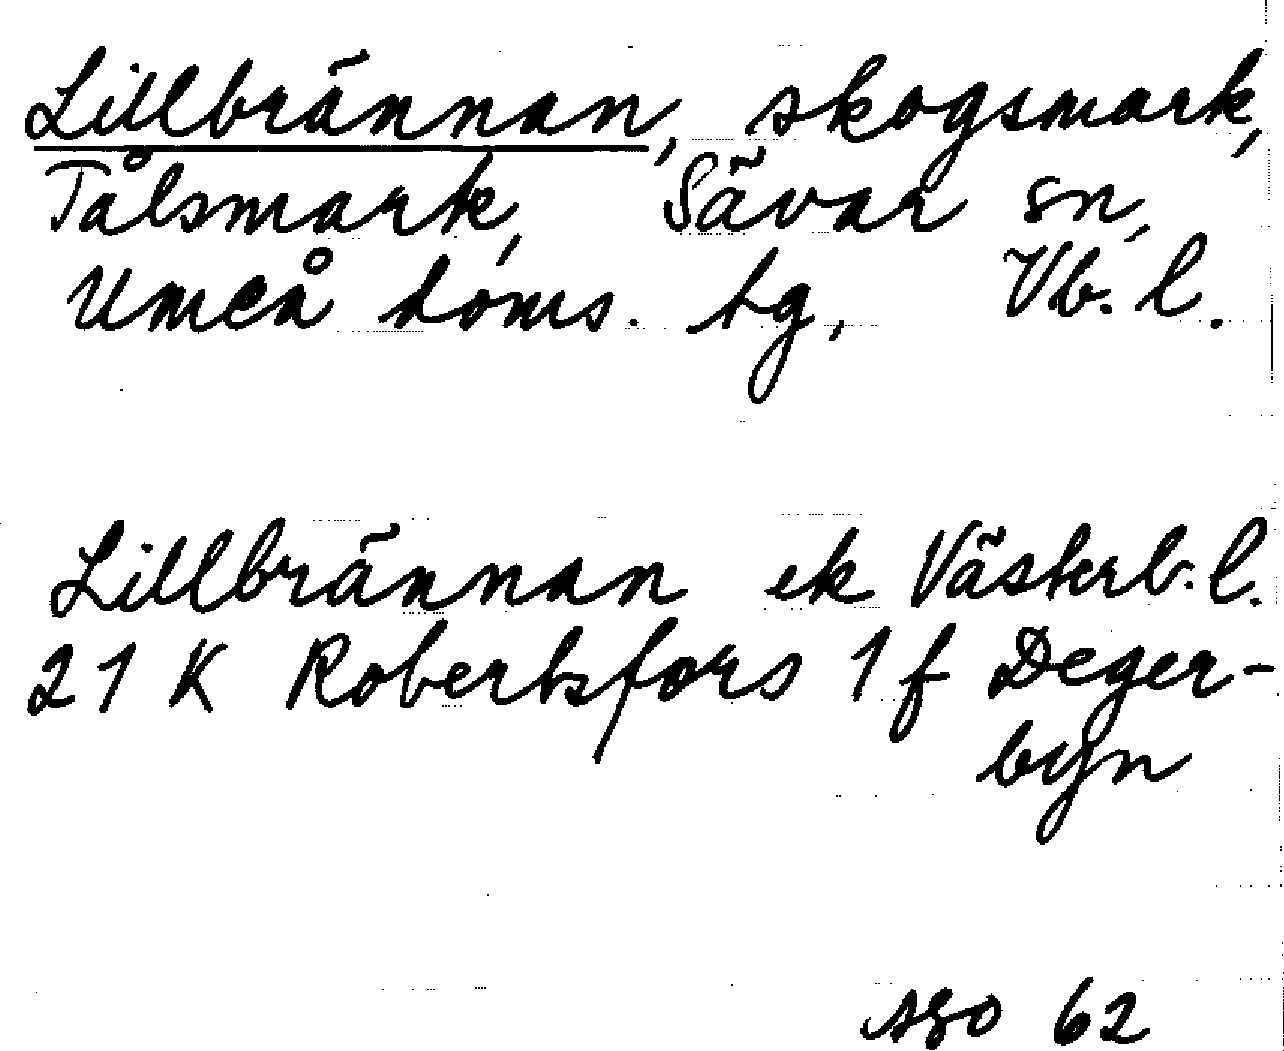 Lillbrännan, skogsmark,
Tålsmark, Sävar sn,
Umeå doms. tg, Vb. l.
Lillbrännan ek Västerb. l.
21 K Robertsfors 1 f Deger-
byn
62